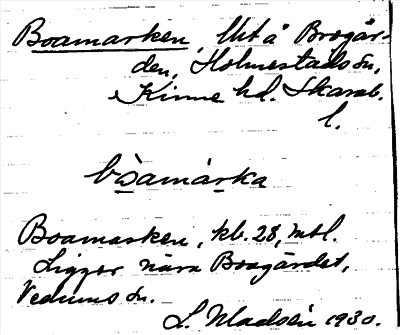 Boamarken, Utå Brogår-
den, Holmestads sn,
Kinne hd. Skarab.
l.
bòamàrka
Boamarken, kb. 28, mtl.
Ligger nära Brogärdet,
Vedums sn.
L. Madsén 1930.